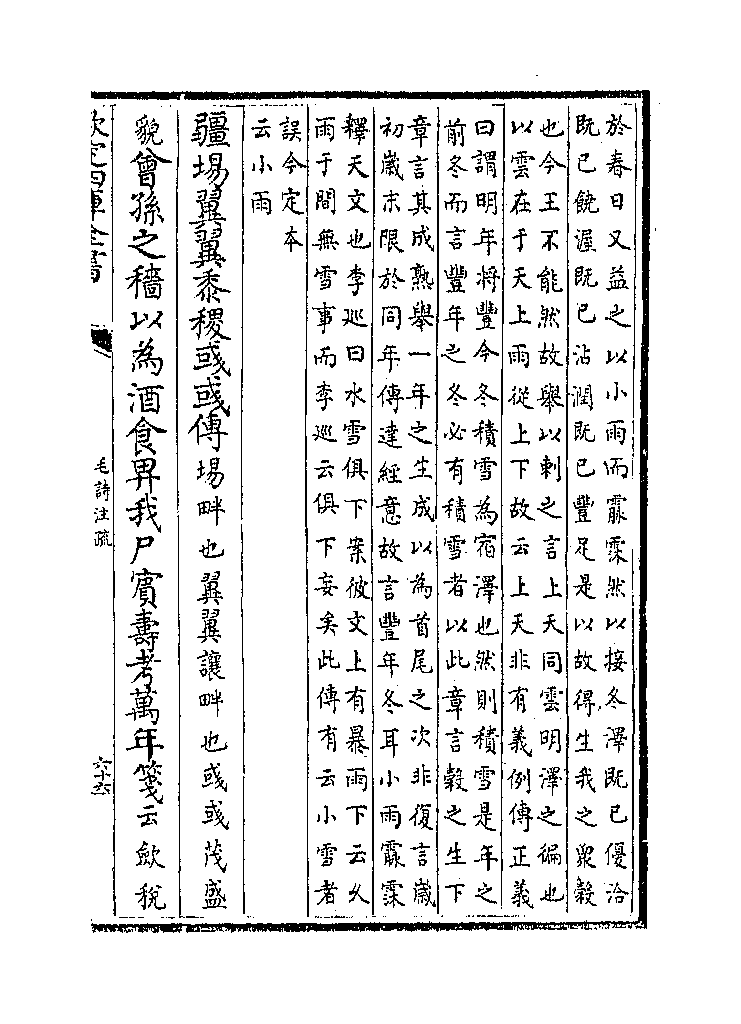 於春日又益之以小雨而霢霂然以接冬澤既已優洽
既已饒渥既已沾潤既已豐足是以故得生我之衆榖
也今王不能然故舉以刺之言上天同雲明澤之徧也
以雲在于天上雨從上下故云上天非有義例傳正義
曰謂明年將豐今冬積雪為宿澤也然則積雪是年之
前冬而言豐年之冬必有積雪者以此章言榖之生下
章言其成熟舉一年之生成以為首尾之次非復言歲
初歲末限於同年傳達經意故言豐年冬耳小雨霢霂
釋天文也李廵曰水雪俱下案彼文上有暴雨下云久
雨于間無雪事而李廵云俱下妄矣此傳有云小雪者
誤今定本
云小雨
疆埸翼翼黍稷彧彧傳埸畔也翼翼讓畔也彧彧茂盛
貌曾孫之穡以為酒食畀我尸賓壽考萬年箋云斂稅
欽定四庫全書
毛詩注疏
六十六